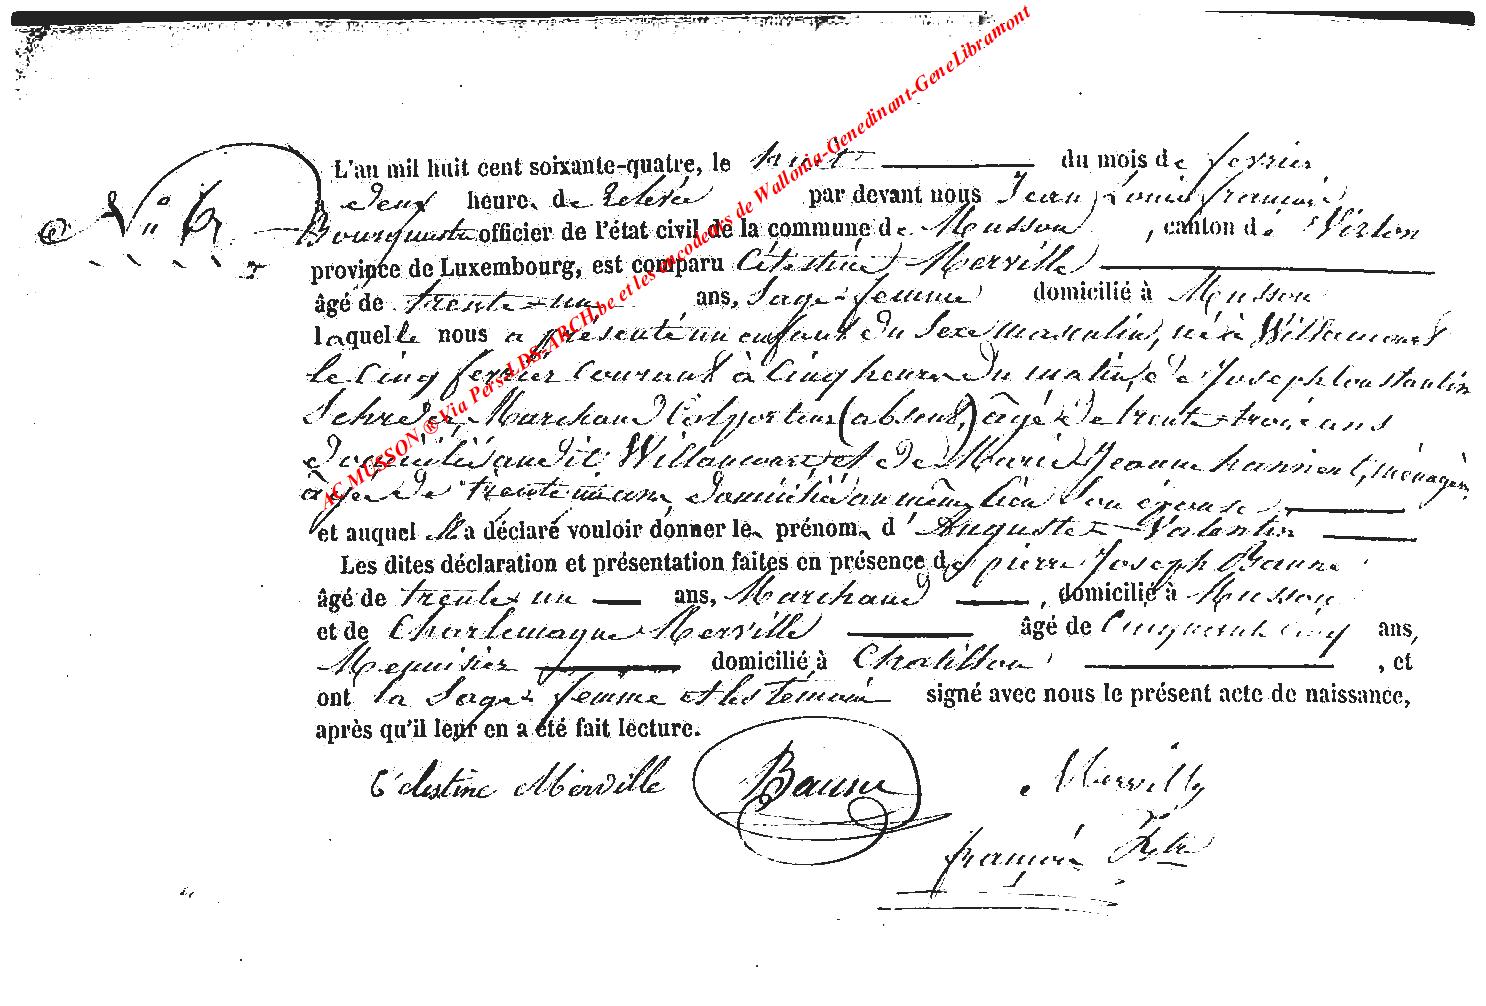 AC MUSSON ® Via Pers-LDS-ARCH.be et les encodeurs de Wallonia-Genedinant-GeneLibramont
L'an mil huit cent soixante-quatre, le huit du mois de fevrier
N° 6 à deux heure. de relevée par devant nous Jean Louis françois
officier de l'état civil de la commune de Musson, canton dé Virton
province de Luxembourg, est comparu Célestine Merville
âgé de trente-un ans, Sage-femme domicilié à Musson
laquelle nous a présenté un enfant du Sexe masculin, né à Willancourt
le Cinq fevrier Courant à Cinq heures du matin, de Joseph Constantin
Marchand Colporteur (absent,) âgé de trente-trois ans
domicilié audit Willancourt et de Marie Jeanne ménagère,
âgée de trente un ans domiciliée au même lieu Son épouse
et auquel il a déclaré vouloir donner le prénom d'Auguste-Valentin
Les dites déclaration et présentation faites en présence de pierre Joseph Baune
âgé de trente-un ans, Marchand, domicilié à Musson
et de Charlemagne Merville âgé de Cinquante cinq ans,
Menuisier domicilié à Chatillon, et
ont la Sage-femme et les témoins signé avec nous le présent acte de naissance,
après qu'il leur en a été fait lecture.
Célestine Merville Baune Merville
françois